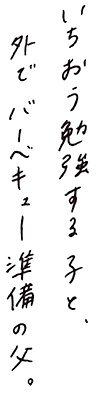 いちおう勉強する子と、
外でバーベキュー準備の父。